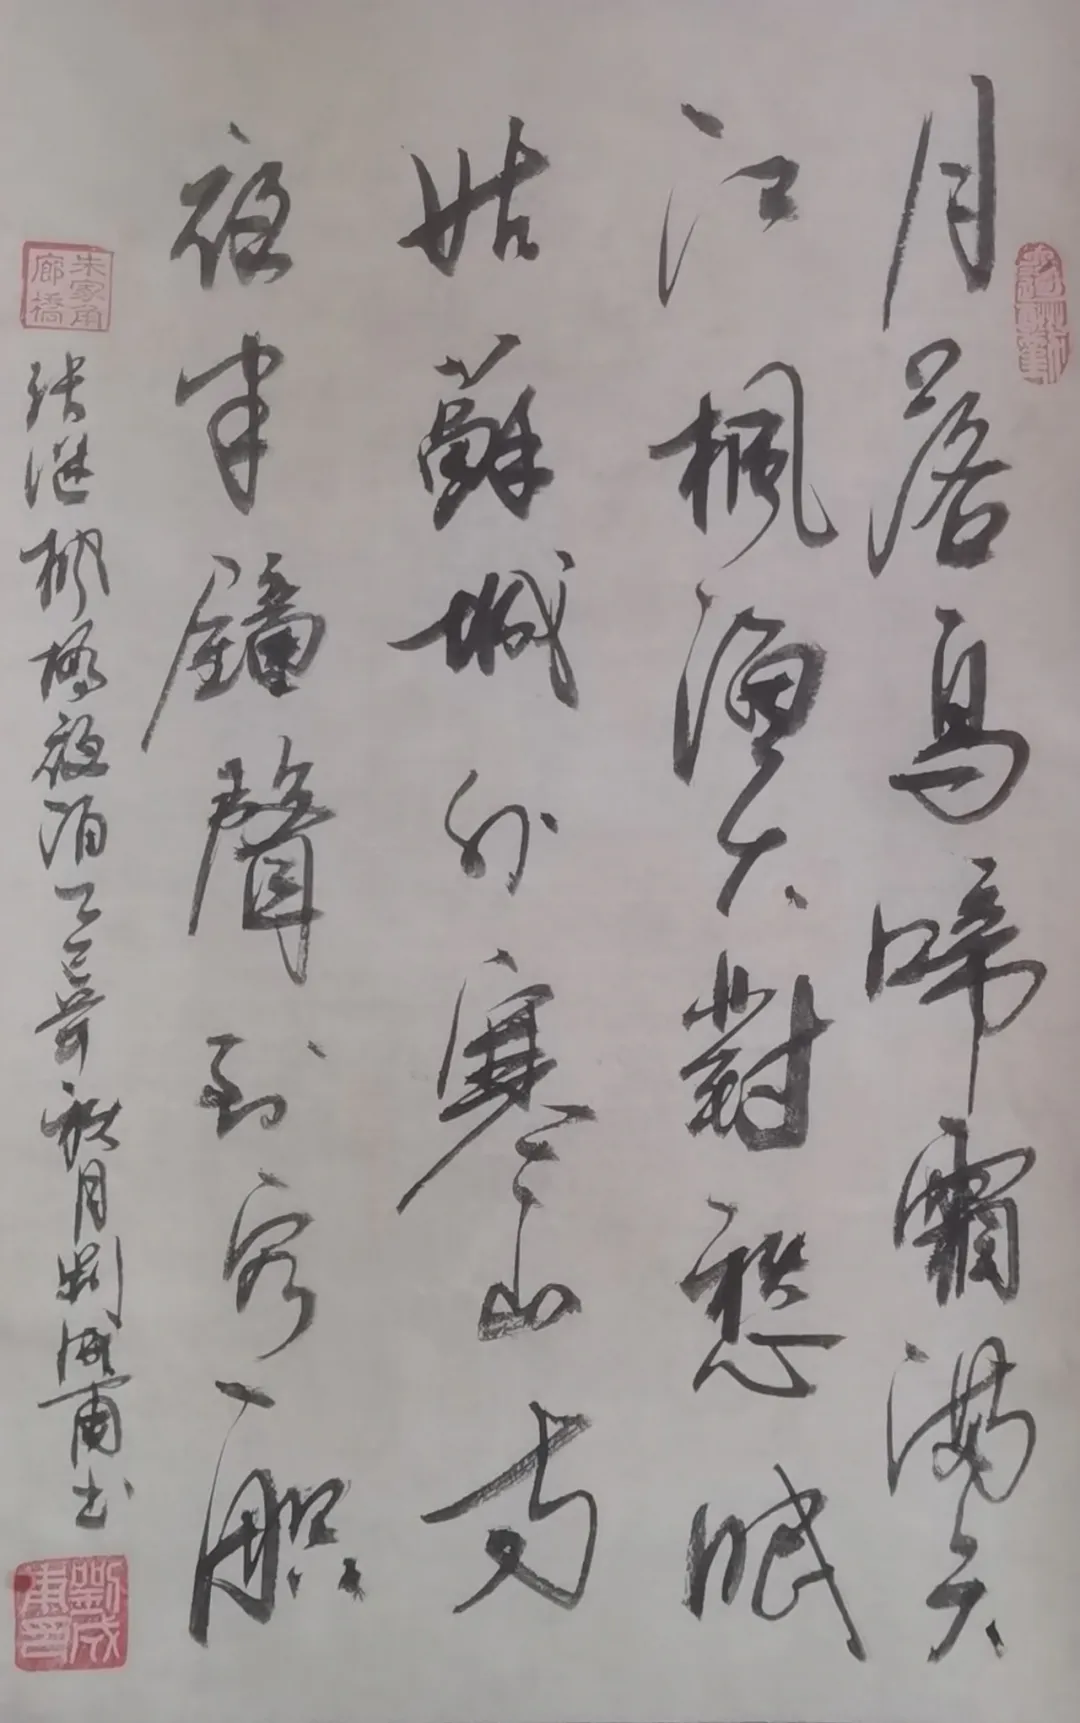 月落烏啼霜滿天
江楓漁火對愁眠
姑蘇城外寒山寺
夜半鐘聲到客船
朱家角廊橋
張繼楓橋夜泊乙巳年秋月劉成书
劉成